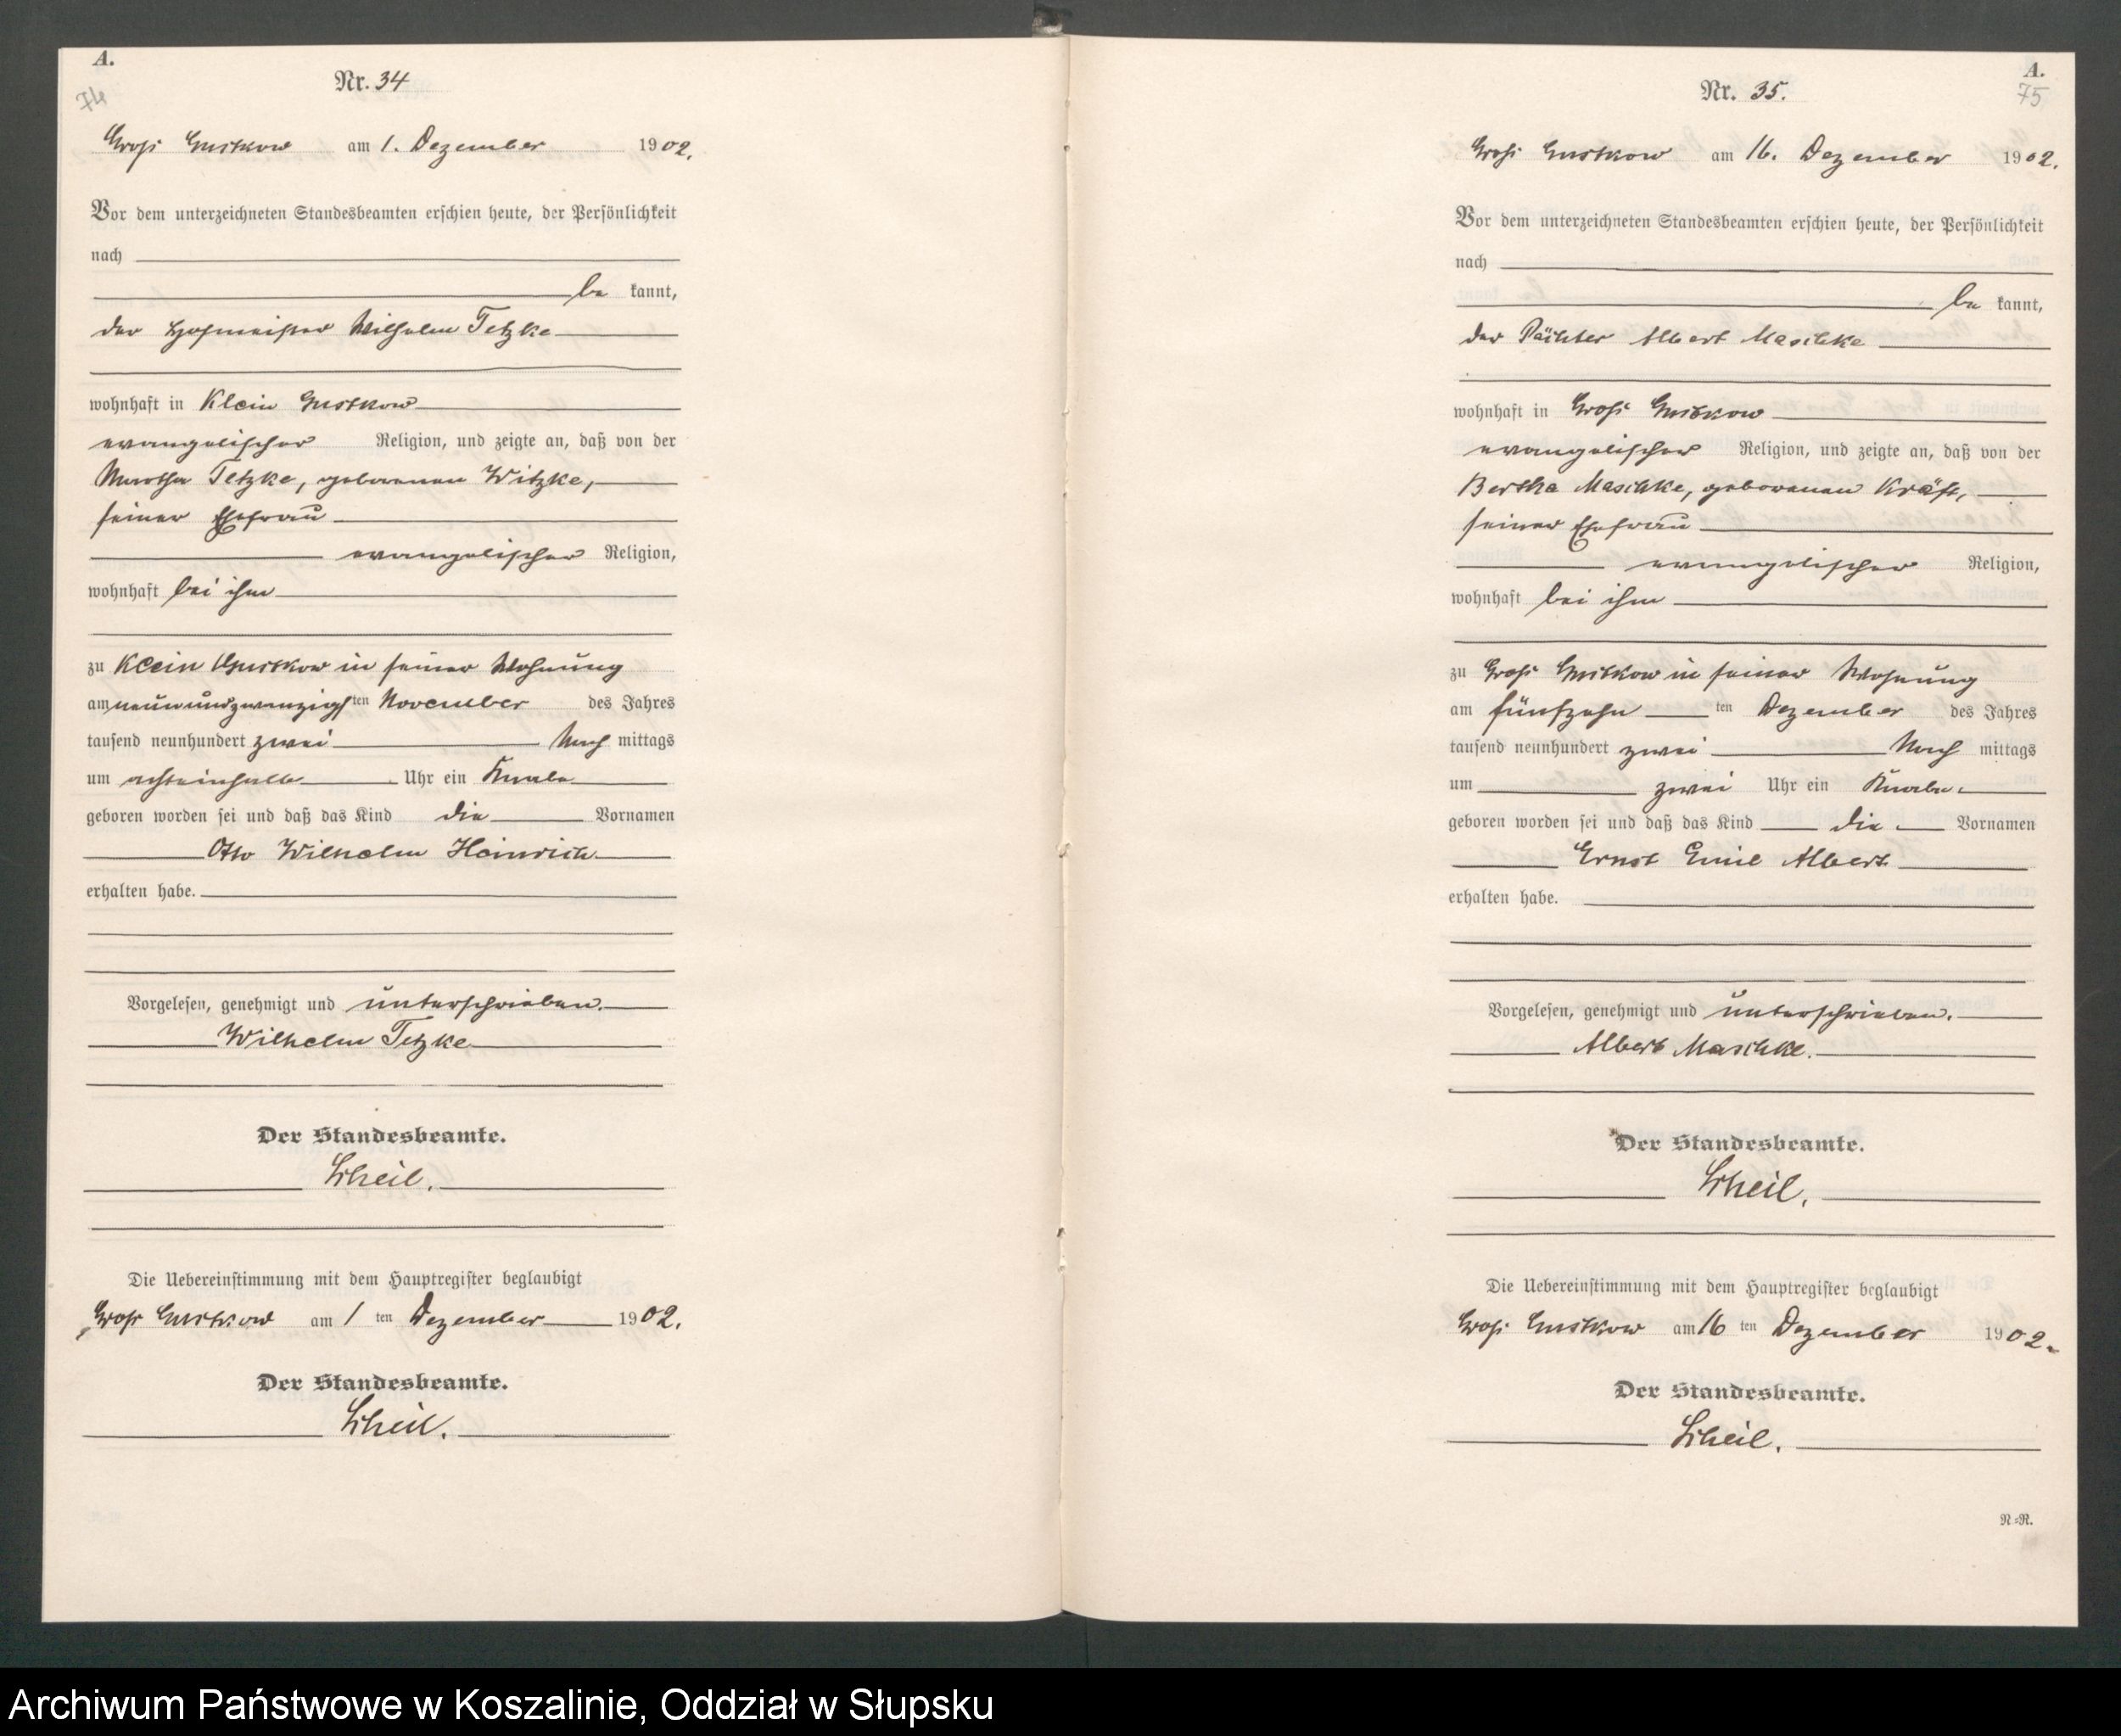 A.
74
Nr. 34
Groß Gustkow am 1. Dezember 1902.
Vor dem unterzeichneten Standesbeamten erschien heute, der Persönlichkeit
nach
be kannt,
der Hofmeister Wilhelm Tetzke
wohnhaft in Klein Gustkow
evangelischer Religion, und zeigte an, daß von der
Martha Tetzke, geborenen Witzke,
seiner Ehefrau
evangelischer Religion,
wohnhaft bei ihm
zu Klein Gustkow in seiner Wohnung
am neunundzwanzigsten November des Jahres
tausend neunhundert zwei Nach mittags
um achteinhalb Uhr ein Knabe
geboren worden sei und daß das Kind die Vornamen
Otto Wilhelm Heinrich
erhalten habe.
Vorgelesen, genehmigt und unterschrieben.
Wilhelm Tetzke
Der Standesbeamte.
Scheil.
Die Uebereinstimmung mit dem Hauptregister beglaubigt
Groß Gustkow am 1 ten Dezember 1902.
Der Standesbeamte.
Scheil.
A.
75
Nr. 35.
Groß Gustkow am 16. Dezember 1902.
Vor dem unterzeichneten Standesbeamten erschien heute, der Persönlichkeit
nach
be kannt,
der Pächter Albert Maschke
wohnhaft in Groß Gustkow
evangelischer Religion, und zeigte an, daß von der
Bertha Maschke, geborenen Kräft,
seiner Ehefrau
evangelischer Religion,
wohnhaft bei ihm
zu Groß Gustkow in seiner Wohnung
am fünfzehn ten Dezember des Jahres
tausend neunhundert zwei Nach mittags
um zwei Uhr ein Knabe
geboren worden sei und daß das Kind die Vornamen
Ernst Emil Albert
erhalten habe.
Vorgelesen, genehmigt und unterschrieben.
Albert Maschke.
Der Standesbeamte.
Scheil.
Die Uebereinstimmung mit dem Hauptregister beglaubigt
Groß Gustkow am 16 ten Dezember 1902.
Der Standesbeamte.
Scheil.
N=N.
Archiwum Państwowe w Koszalinie, Oddział w Słupsku